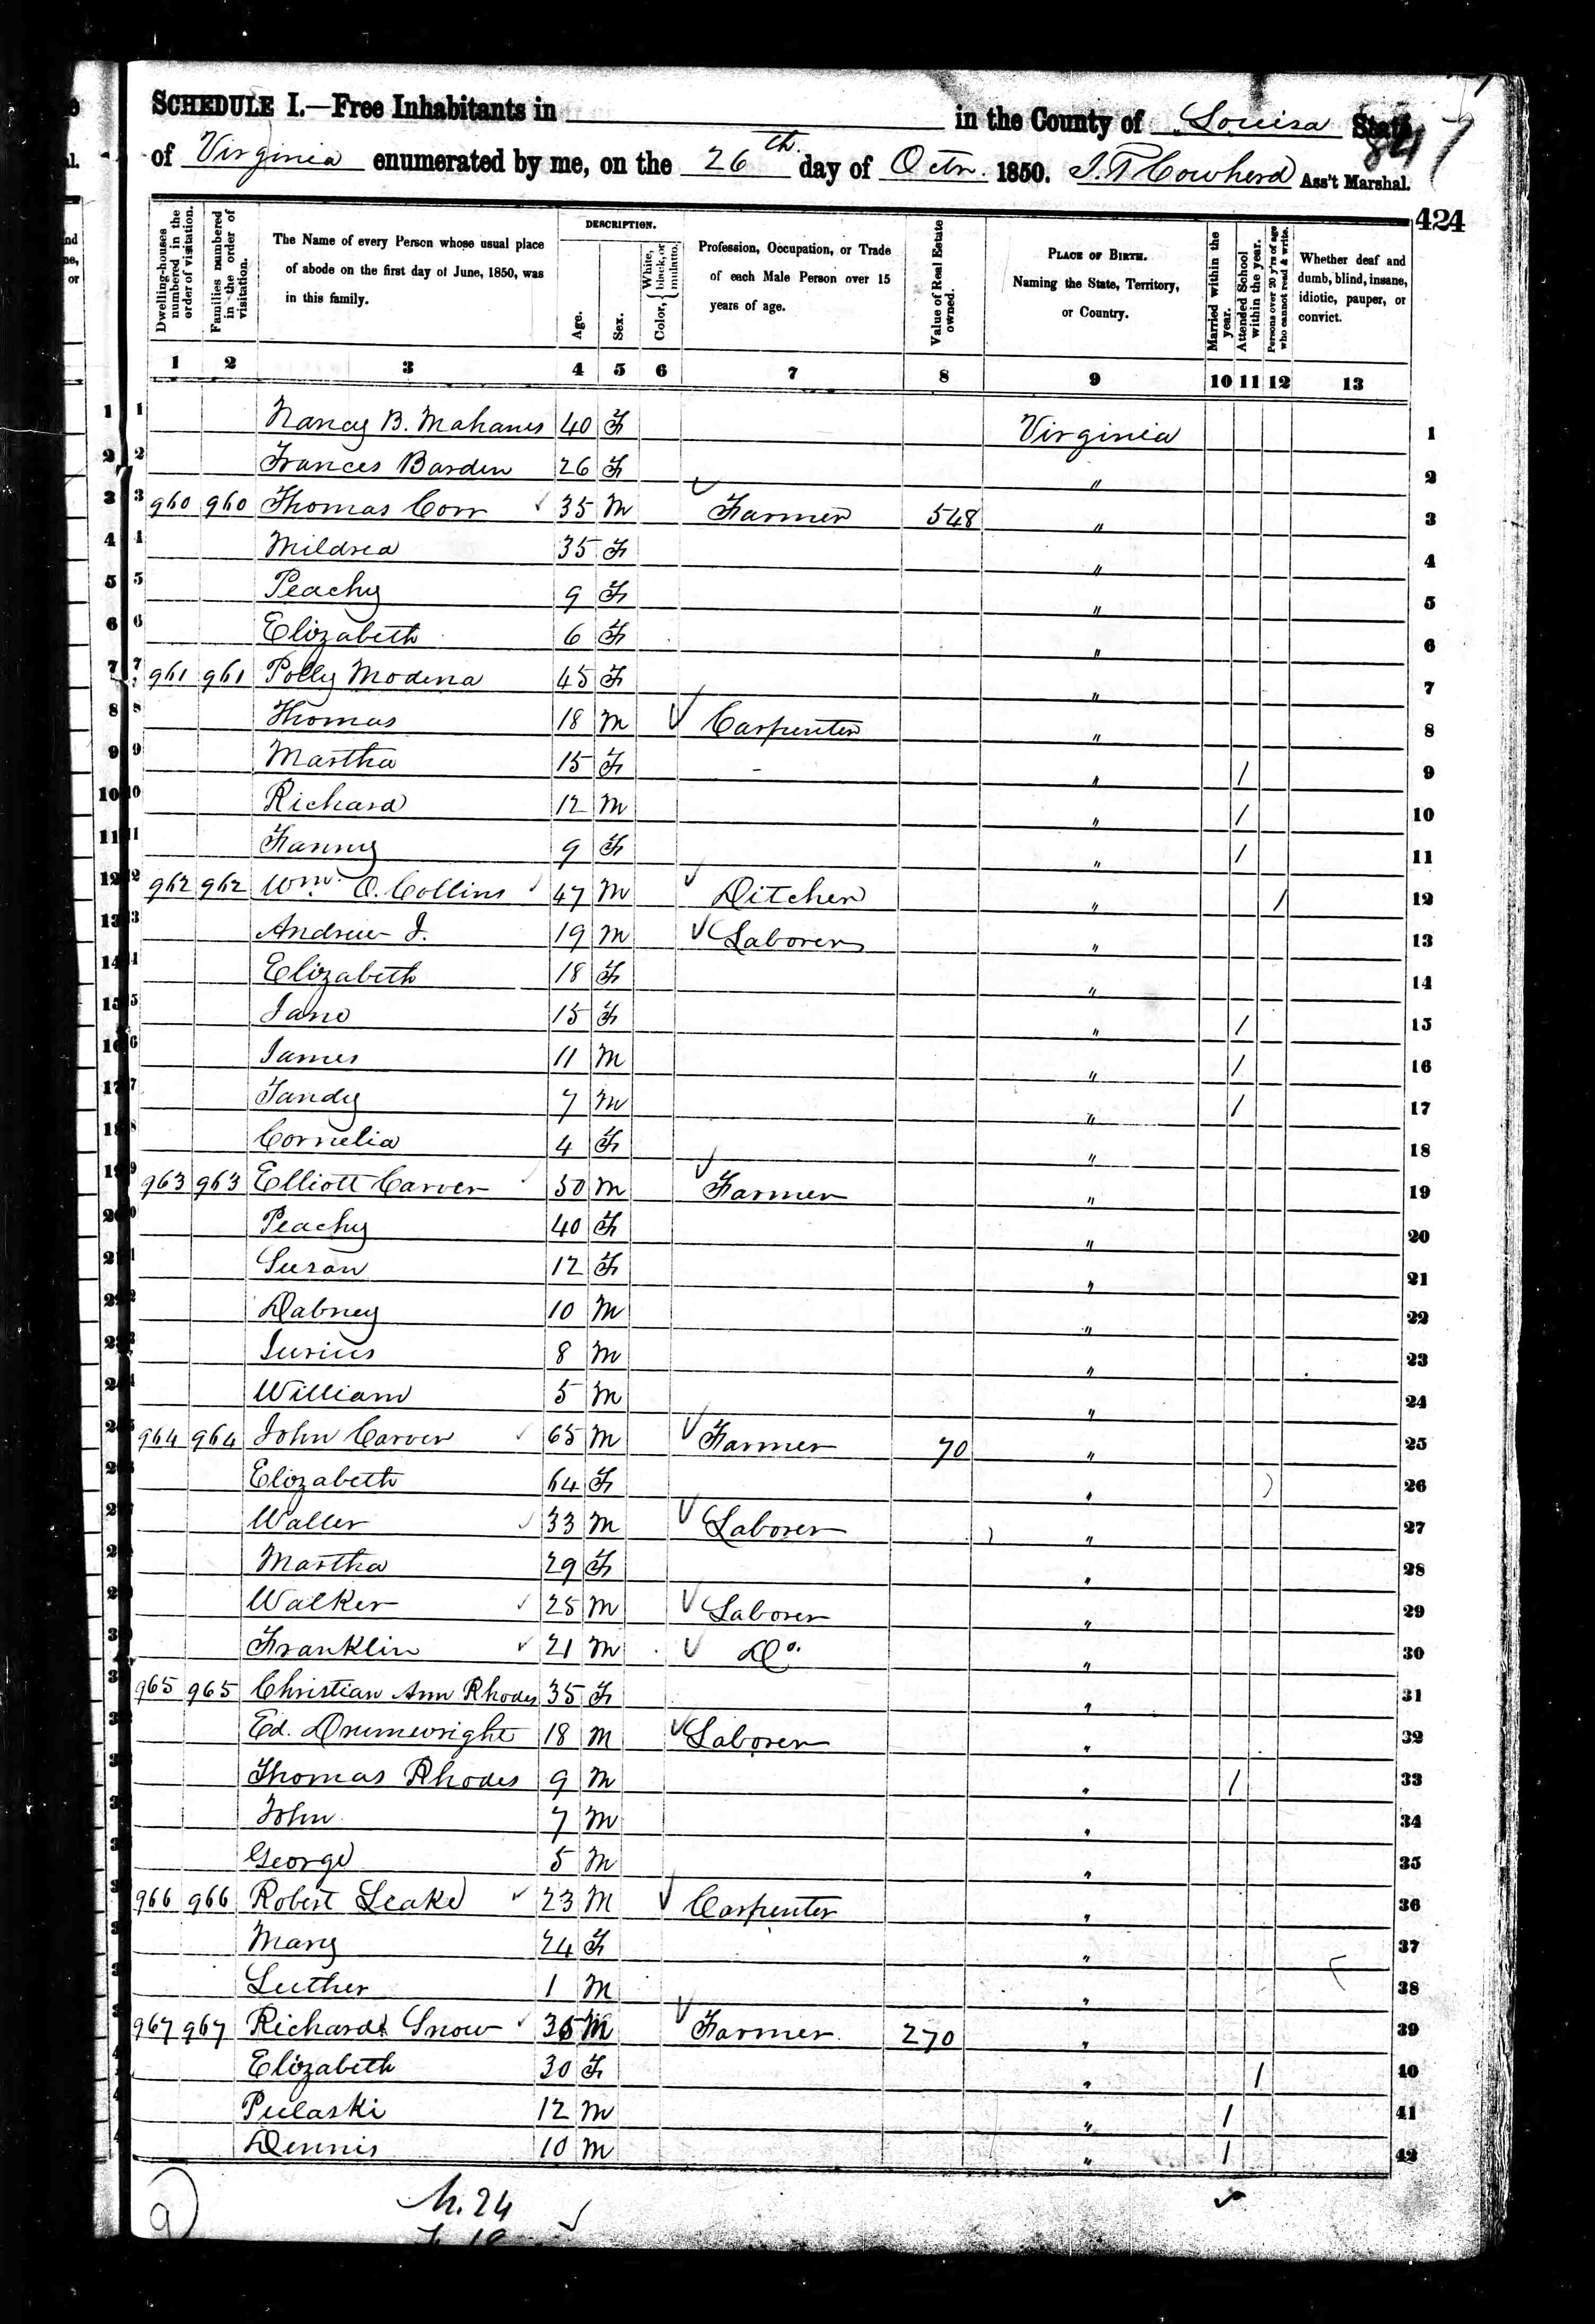 SCHEDULE I.—Free Inhabitants in in the County of Louisa State
of Virginia enumerated by me, on the 26th day of Octr. 1850. Ass't Marshal.
424
Dwelling-houses numbered in the order of visitation.
Families numbered in the order of visitation.
The Name of every Person whose usual place of abode on the first day of June, 1850, was in this family.
DESCRIPTION.
Age.
Sex.
Color, { White, black, or mulatto.
Profession, Occupation, or Trade of each Male Person over 15 years of age.
Value of Real Estate owned.
PLACE OF BIRTH. Naming the State, Territory, or Country.
Married within the year.
Attended School within the year.
Persons over 20 y'rs of age who cannot read & write.
Whether deaf and dumb, blind, insane, idiotic, pauper, or convict.
1 2 3 4 5 6 7 8 9 10 11 12 13
1 Nancy B. Mahanes 40 F Virginia 1
2 Frances Barden 26 F " 2
3 960 960 Thomas Corr 35 M Farmer 548 " 3
4 Mildred 35 F " 4
5 Peachy 9 F " 5
6 Elizabeth 6 F " 6
7 961 961 Polly Modena 45 F " 7
8 Thomas 18 M Carpenter " 8
9 Martha 15 F " / 9
10 Richard 12 M " / 10
11 Fanny 9 F " / 11
12 962 962 Wm. O. Collins 47 M Ditcher " / 12
13 Andrew J. 19 M Laborer " 13
14 Elizabeth 18 F " 14
15 Jane 15 F " / 15
16 James 11 M " / 16
17 Tandy 7 M " / 17
18 Cornelia 4 F " 18
19 963 963 Elliott Carver 50 M Farmer " 19
20 Peachy 40 F " 20
21 Susan 12 F " 21
22 Dabney 10 M " 22
23 Junius 8 M " 23
24 William 5 M " 24
964 964 John Carver 65 M Farmer 70 " 25
Elizabeth 64 F " ) 26
Waller 33 M Laborer " 27
Martha 29 F " 28
Walker 25 M Laborer " 29
Franklin 21 M Do. " 30
965 965 Christian Ann Rhodes 35 F " 31
Ed. Drumwright 18 M Laborer " 32
Thomas Rhodes 9 M " / 33
John 7 M " 34
George 5 M " 35
966 966 Robert Leake 23 M Carpenter " 36
Mary 24 F " 37
Luther 1 M " 38
967 967 Richard Snow 35 M Farmer 270 " 39
Elizabeth 30 F " / 40
Pulaski 12 M " / 41
Dennis 10 M " / 42
M. 24